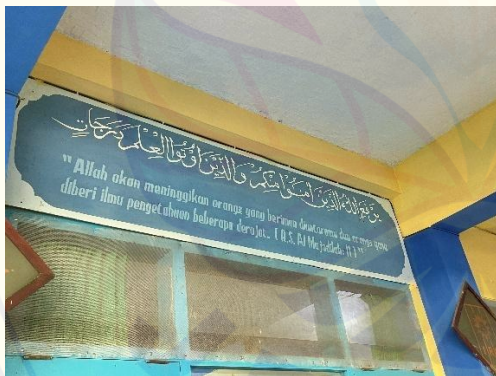 يَرْفَعِ اللهُ الَّذِيْنَ اٰمَنُوْا مِنْكُمْ وَالَّذِيْنَ اُوْتُوا الْعِلْمَ دَرَجَاتٍ
"Allah akan meninggikan orang2 yang beriman diantaramu dan orang2 yang
diberi ilmu pengetahuan beberapa derajat.. (Q.S. Al Mujadilah 11)"